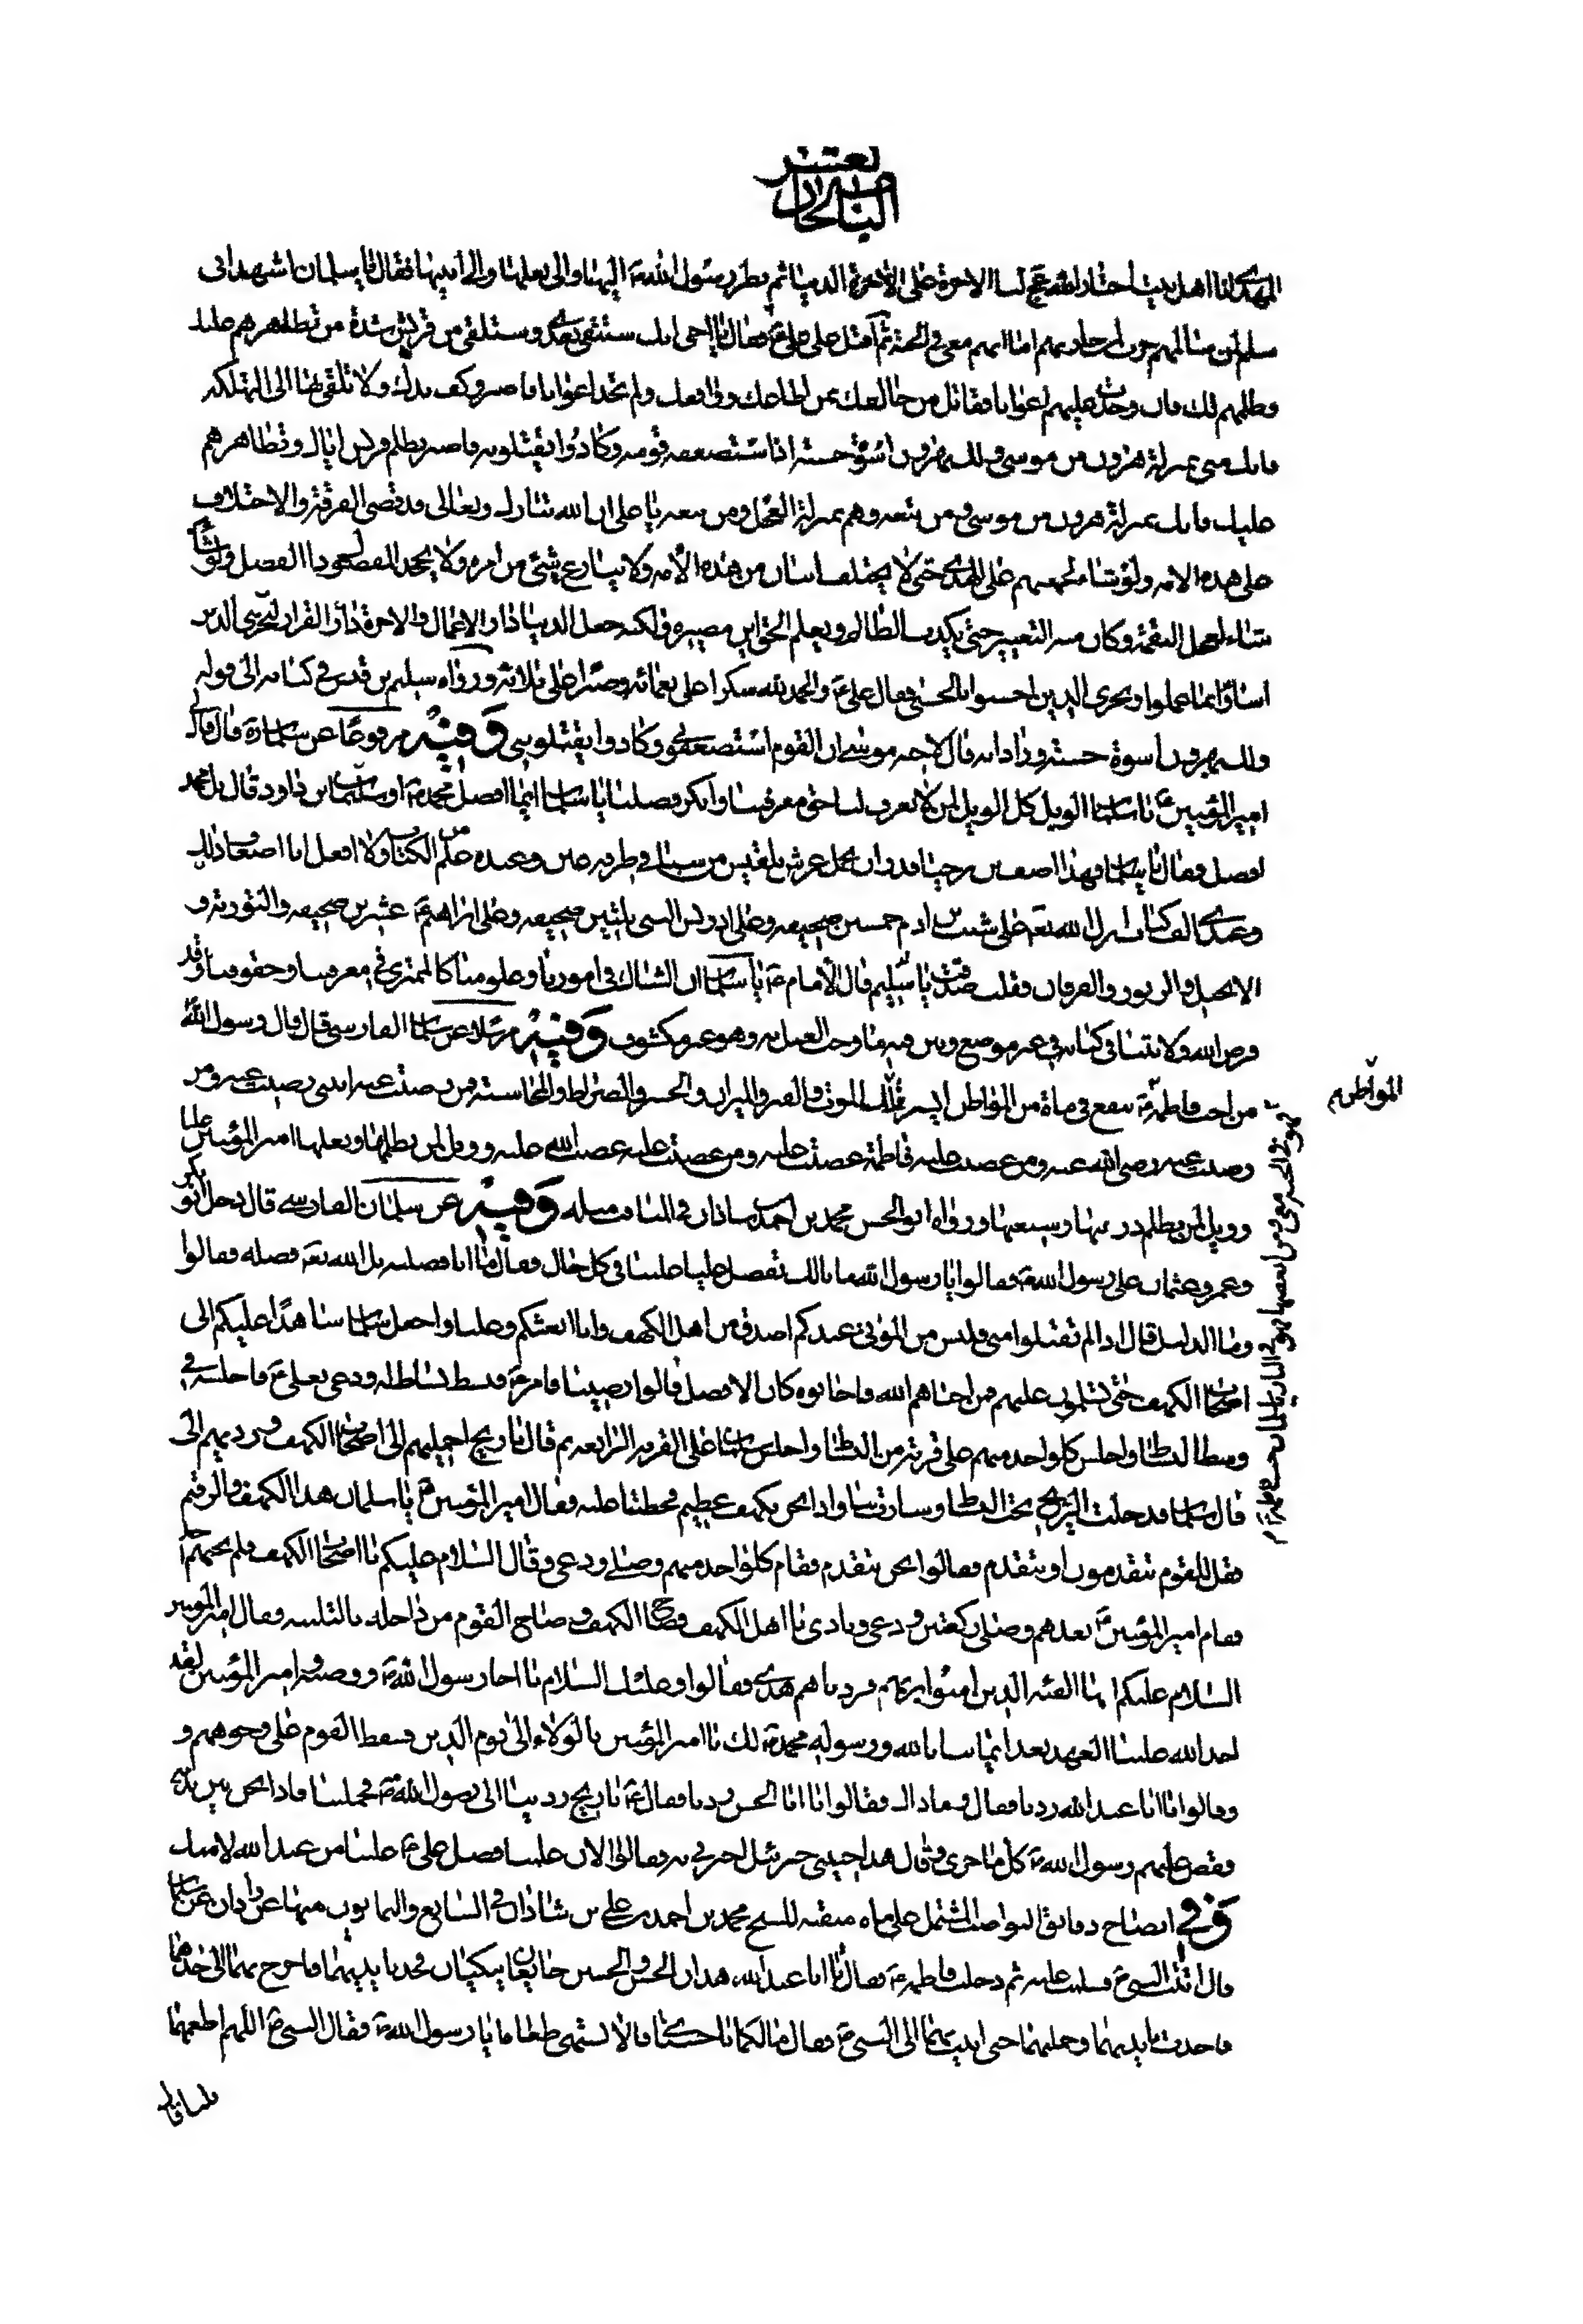 الباب الحادي عشر
المهدي انا اهل بيت اختار الله عج لنا الاخرة على الدنيا ثم نظر رسول الله ص اليها والى بعلها والى ابنيها فقال يا سلمان اشهد اني
سلم لمن سالمهم حرب لمن حاربهم اما انهم معي في الجنة ثم اقبل على علي ع فقال يا اخي انك ستبقى بعدي وستلقى من قريش شدة من تظاهرهم عليك
وظلمهم لك فان وجدت عليهم اعوانا فقاتل من خالفك بمن اطاعك ووافقك وان لم تجد اعوانا فاصبر وكف يدك ولا تلقى بها الى التهلكة
فانك مني بمنزلة هرون من موسى ولك بهرون اسوة حسنة اذ استضعفه قومه وكادوا يقتلونه فاصبر لظلم قريش اياك وتظاهرهم
عليك فانك بمنزلة هرون من موسى ومن تبعه وهم بمنزلة العجل ومن تبعه يا علي ان الله تبارك وتعالى قد قضى الفرقة والاختلاف
على هذه الامة ولو شاء لجمعهم على الهدى حتى لا يختلف اثنان من هذه الامة ولا ينازع في شئ من امره ولا يجحد المفضول ذا الفضل ولو شاء
شاء لعجل النقمة وكان منه التغيير حتى يكذب الظالم ويعلم الحق اين مصيره ولكنه جعل الدنيا دار الاعمال والاخرة دار القرار ليجزي الذين
اساؤا بما عملوا ويجزى الذين احسنوا بالحسنى فقال علي ع والحمد لله شكرا على نعمائه وصبرا على بلائه ورواه سليم بن قيس في كتابه الى قوله
ولك بهرون اسوة حسنة وزاد انه قال لاخيه موسى ان القوم استضعفوني وكادوا يقتلونني وفيه مرفوعا عن سلمان ره قال قال لي
امير المؤمنين ع يا سلمان الويل كل الويل لمن لا يعرف لنا حق معرفتنا وانكر فضلنا يا سلمان ايما افضل محمد ص او سليمان بن داود قال بل محمد
افضل فقال يا سلمان فهذا اصف بن برخيا قدر ان يحمل عرش بلقيس من سبا في طرفة عين وعنده علم من الكتاب ولا افعل انا اضعاف ذلك
وعندي الف كتاب انزل الله تع على شيث بن ادم خمسين صحيفه وعلى ادريس النبي ثلثين صحيفه وعلى ابراهيم ع عشرين صحيفه والتورية و
الانجيل والزبور والفرقان فقلت صدقت يا سيدي قال الامام ع يا سلمان ان الشاك في امورنا وعلومنا كالممتري في معرفتنا وحقوقنا وقد
فرض الله ولايتنا في كتابه في غير موضع وبين فيه ما وجب العمل به وهو غير مكشوف وفيه مرسلا عن سلمان الفارسي قال قال رسول الله
من احب فاطمة ع نفع في ماة من المواطن ايسر تلك الموت والقبر والميزان والحشر والصراط والمحاسبة فمن رضت عنه ابنتي رضيت عنه ومن
رضيت عنه رضي الله عنه ومن غضبت عليه فاطمة غضبت عليه ومن غضبت عليه غضب الله عليه وويل لمن يظلمها وبعلها امير المؤمنين عليا
وويل لمن يظلم ذريتها وشيعتها ورواه ابو الحسن محمد بن احمد بن شاذان في المناقب مثله وفيه عن سلمان الفارسي قال دخل ابو بكر
وعمر وعثمان على رسول الله ص فقالوا يا رسول الله ما بالك تفضل عليا علينا في كل حال فقال ما انا فضلته بل الله تع فضله فقالوا
وما الدليل قال اذا لم تقبلوا مني فليس من الموتى عندكم اصدق من اهل الكهف وانا ابعثكم وعليا واجعل سلمان شاهدا عليكم الى
اصحاب الكهف حتى تسلموا عليهم فمن احياهم الله واجابوه كان الافضل قالوا رضينا فامر ص فبسط بساط له ودعى بعلي ع فاجلسه في
وسط البساط واجلس كلواحد منهم على قرنة من البساط واجلس سلمان على القرنة الرابعة ثم قال يا ريح احمليهم الى اصحاب الكهف ورديهم الى
قال سلمان فدخلت الريح تحت البساط وسارت بنا واذا نحن بكهف عظيم فحطتنا عليه فقال امير المؤمنين ع يا سلمان هذا الكهف والرقيم
فقل للقوم يتقدمون او نتقدم فقالوا نحن نتقدم فقام كلواحد منهم وصلى ودعى وقال السلام عليكم يا اصحاب الكهف فلم يجبهم احد
فقام امير المؤمنين ع بعدهم وصلى ركعتين ودعى ونادى يا اهل الكهف فصاح الكهف وصاح القوم من داخله بالتلبية فقال امير المؤمنين
السلام عليكم ايها الفتية الذين امنوا بربهم فزدناهم هدى فقالوا وعليك السلام يا اخا رسول الله ص ووصيه وامير المؤمنين لقد
اخذ الله علينا العهد بعد ايماننا بالله ورسوله محمد ص لك يا امير المؤمنين بالولاء الى يوم الدين فسقط القوم على وجوههم و
وقالوا يا ابا عبد الله ردنا فقال وما ذاك فقالوا يا ابا الحسن ردنا فقال ع يا ريح ردينا الى رسول الله ص فحملتنا فاذا نحن بين يديه
فقص عليهم رسول الله ص كل ما جرى وقال هذا حبيبي جبرئيل اخبرني به فقالوا الان علمنا فضل علي ع علينا من عند الله لا منك
وفي ايضاح دفائن النواصب المشتمل على ماه منقبه للشيخ محمد بن احمد بن علي بن شاذان في السابع والثمانون منها عن زاذان عن سلمان
قال اتيت النبي ص فسلمت عليه ثم دخلت فاطمة ع فقال يا ابا عبد الله هذان الحسن والحسين جايعان يبكيان فخذ بايديهما فاخرج بهما الى جدهما
فاخذت بايديهما وحملتهما حتى اتيت بهما الى النبي ص فقال ما لكما يا حسناي قالا نشتهي طعاما يا رسول الله ص فقال النبي ص اللهم اطعمهما
المواطن